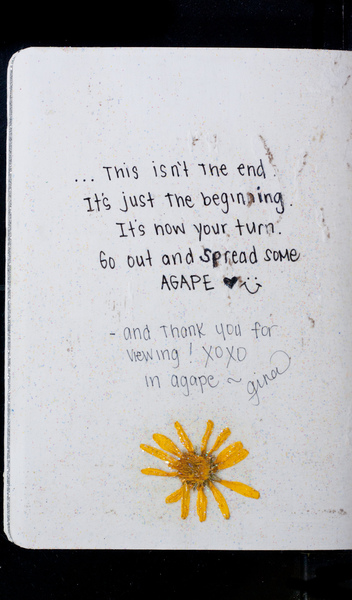 ... This isn't the end.
It's just the beginning.
It's now your turn.
Go out and spread some
AGAPE ♥ :)
- and thank you for
viewing! XOXO
in agape ~ gina